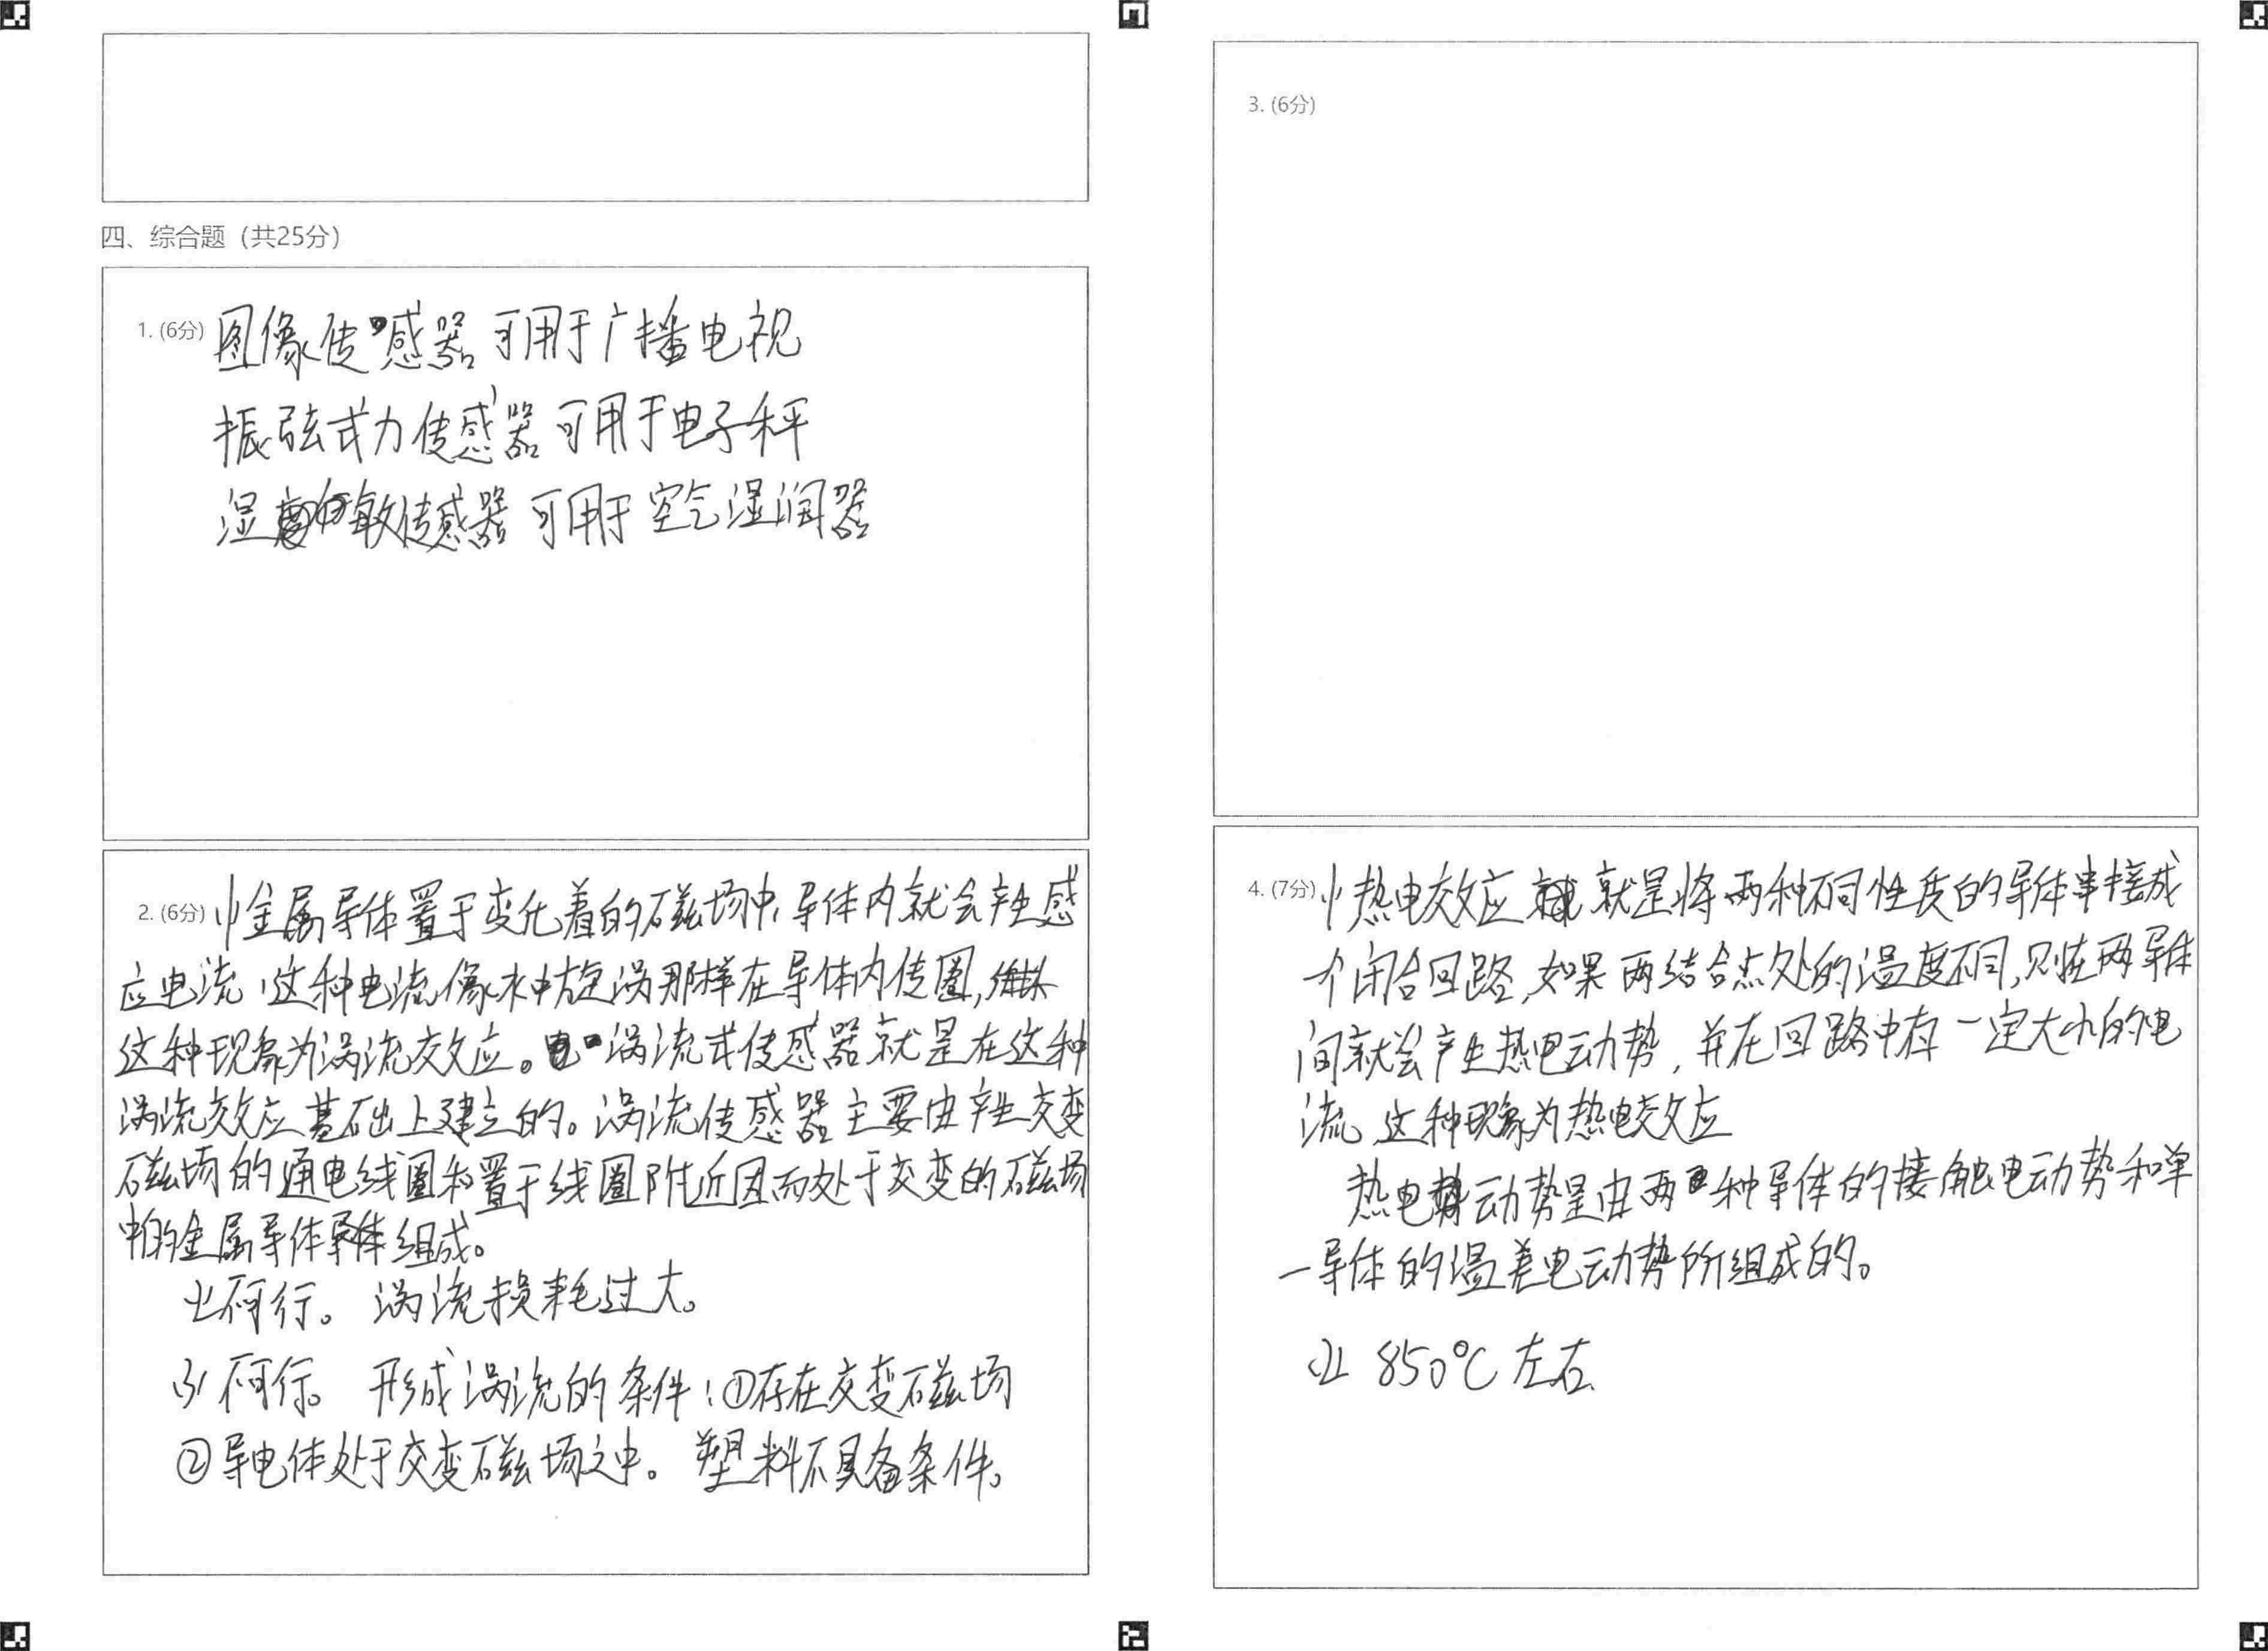 四、综合题（共25分）
1. (6分) 图像传感器可用于广播电视
振弦式力传感器可用于电子秤
湿敏传感器可用于空气湿润器
2. (6分) (1) 金属导体置于变化着的磁场中,导体内就会产生感
应电流,这种电流像水中旋涡那样在导体内传圈,
这种现象为涡流效应。涡流式传感器就是在这种
涡流效应基础上建立的。涡流传感器主要由产生交变
磁场的通电线圈和置于线圈附近因而处于交变的磁场
中的金属导体组成。
(2) 不可行。涡流损耗过大。
(3) 不可行。形成涡流的条件:①存在交变磁场
②导电体处于交变磁场之中。塑料不具备条件。
3. (6分)
4. (7分) (1) 热电效应就是将两种不同性质的导体串接成
个闭合回路,如果两结合点处的温度不同,则在两导体
间就会产生热电动势,并在回路中有一定大小的电
流,这种现象为热电效应
热电动势是由两种导体的接触电动势和单
一导体的温差电动势所组成的。
(2) 850℃左右